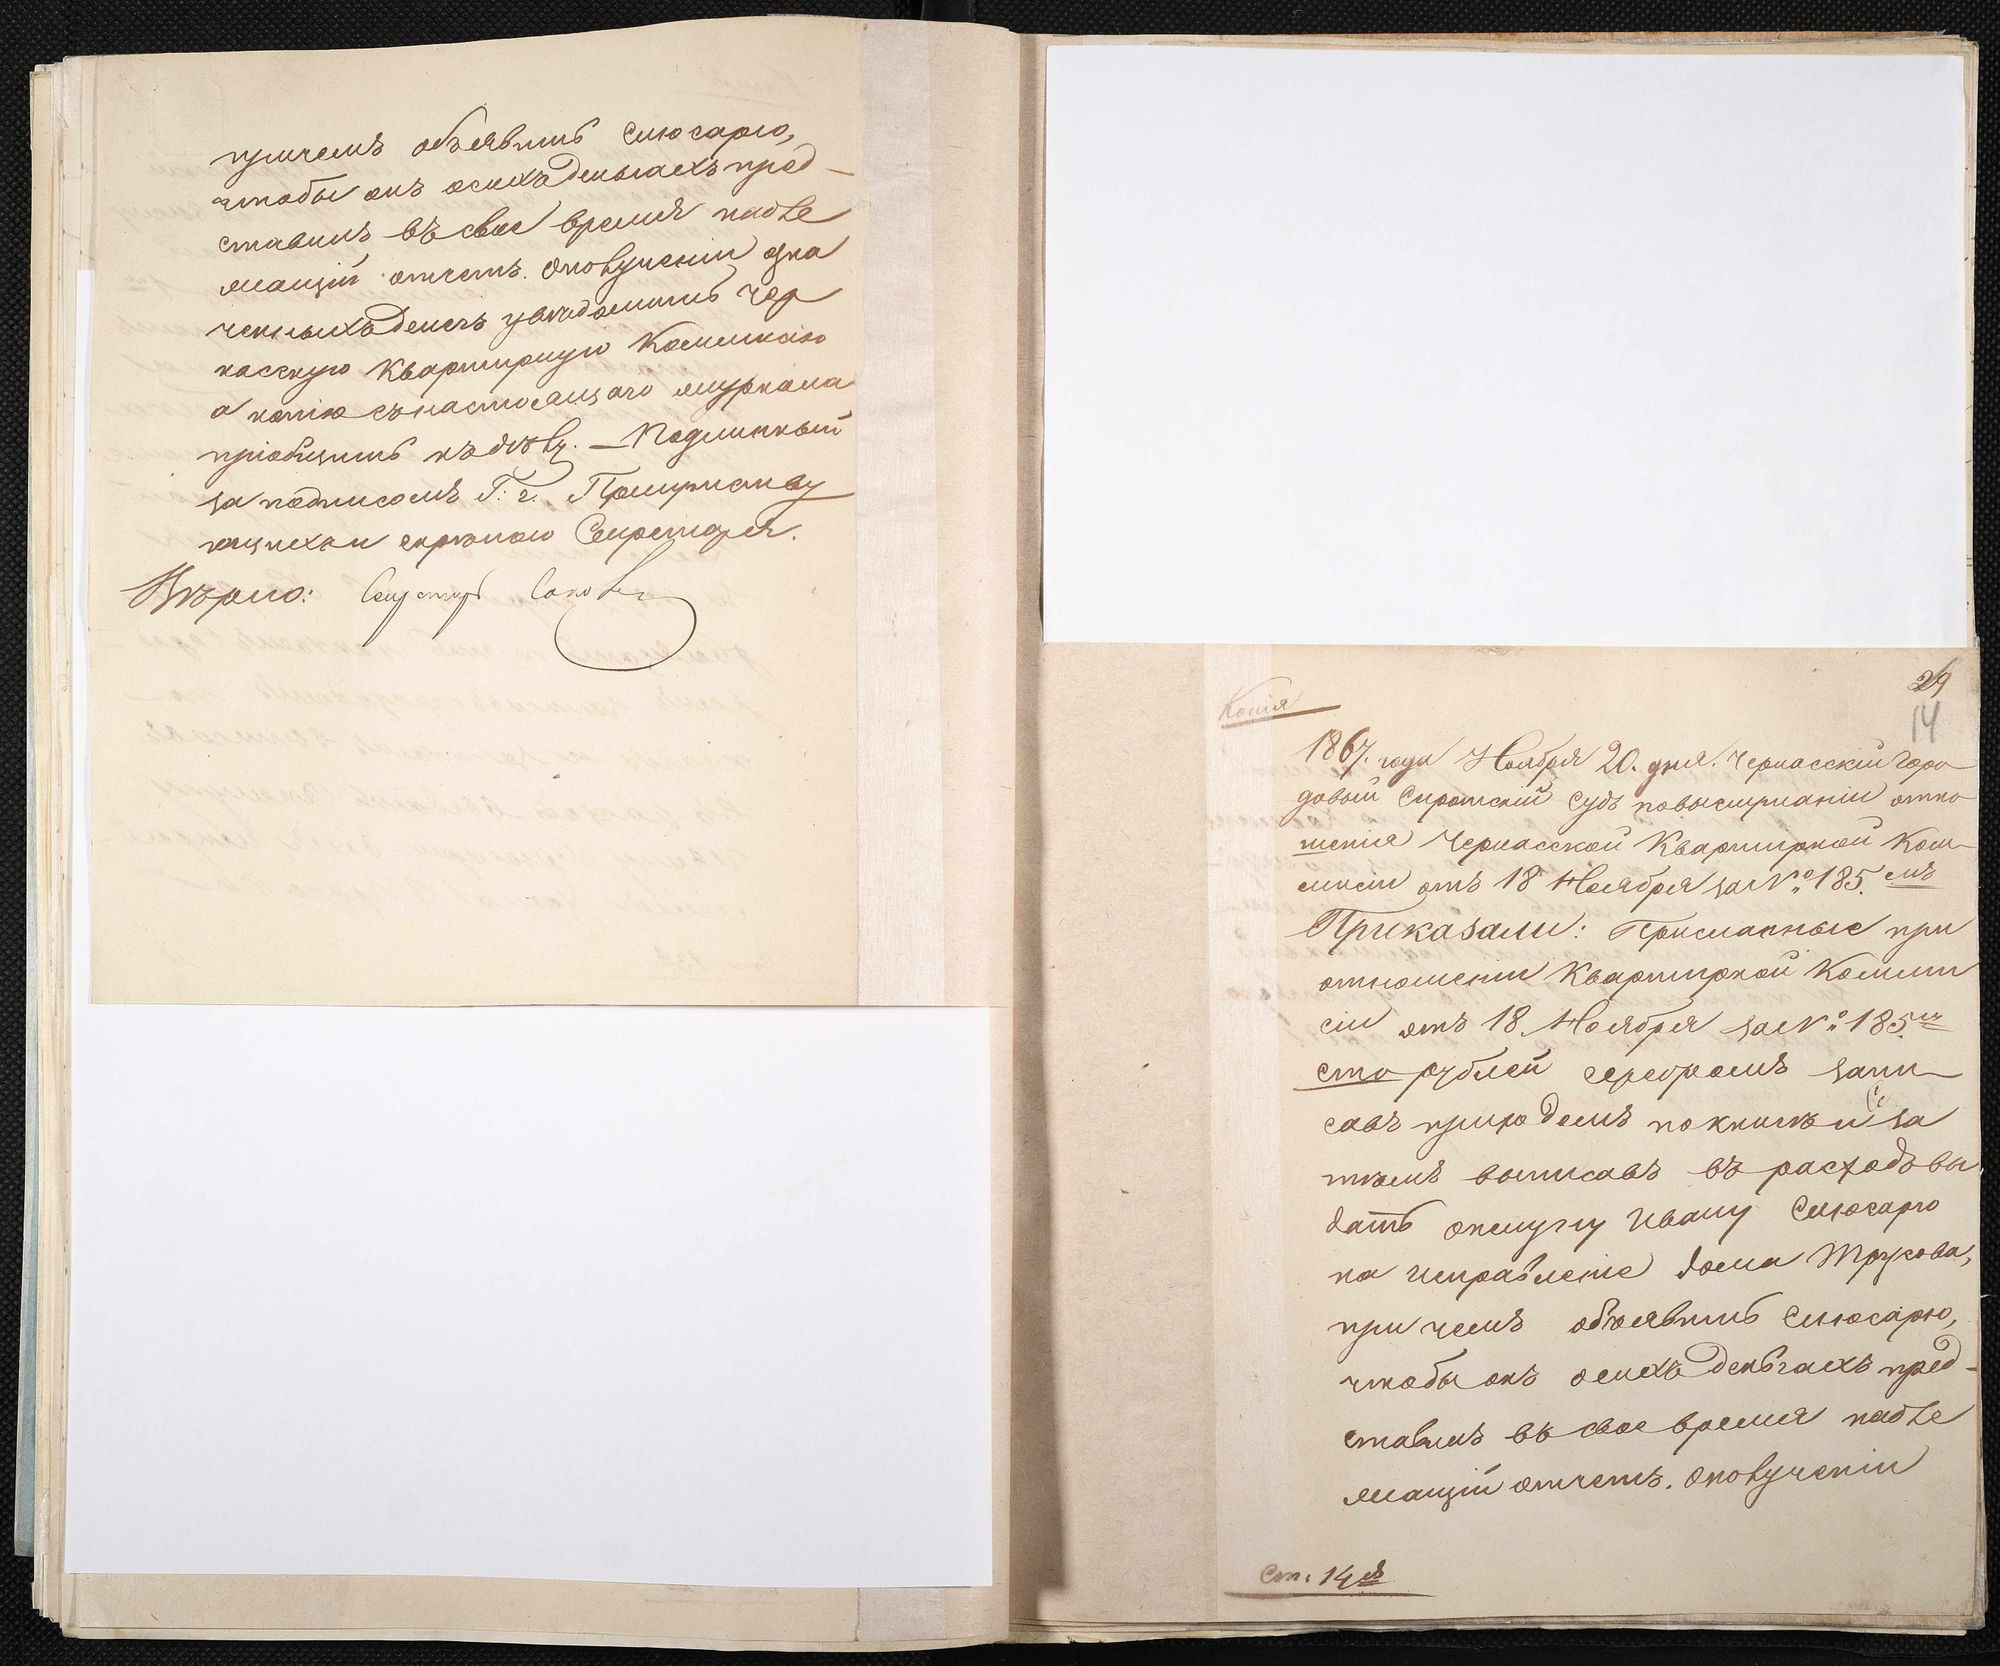 причемъ объявить Слюсарю,
чтобы онъ о сихъ деньгахъ пред-
ставилъ въ свое время надле
жащій отчетъ. О полученіи озна
ченныхъ денегъ увѣдомить Чер
касскую Квартирную Коммисію
а копію съ настоящаго журнала
пріобщить къ дѣлу. — Подлинный
за подписомъ Г: г. Присутству
ющихъ и скрѣпою Секретаря.
Вѣрно: Секретарь
29
14
Копія
1867. года Ноября 20. дня. Черкасскій Горо
довый Сиротскій Судъ по выслушаніи отно
шенія Черкасской Квартирной Ком-
мисіи отъ 18 Ноября за № 185. мъ
Приказали: Присланные при
отношеніи Квартирной Комми
сіи отъ 18 Ноября за № 185 мъ
сто рублей серебромъ запи-
савъ приходомъ по книгѣ и за
тѣмъ выписавъ въ расходъ вы
дать опекуну Ивану Слюсарю
на исправленіе дома Трукова,
при чемъ объявить Слюсарю,
чтобы онъ о сихъ деньгахъ пред-
ставилъ въ свое время надле
жащій отчетъ. О полученіи
Ст: 14 я